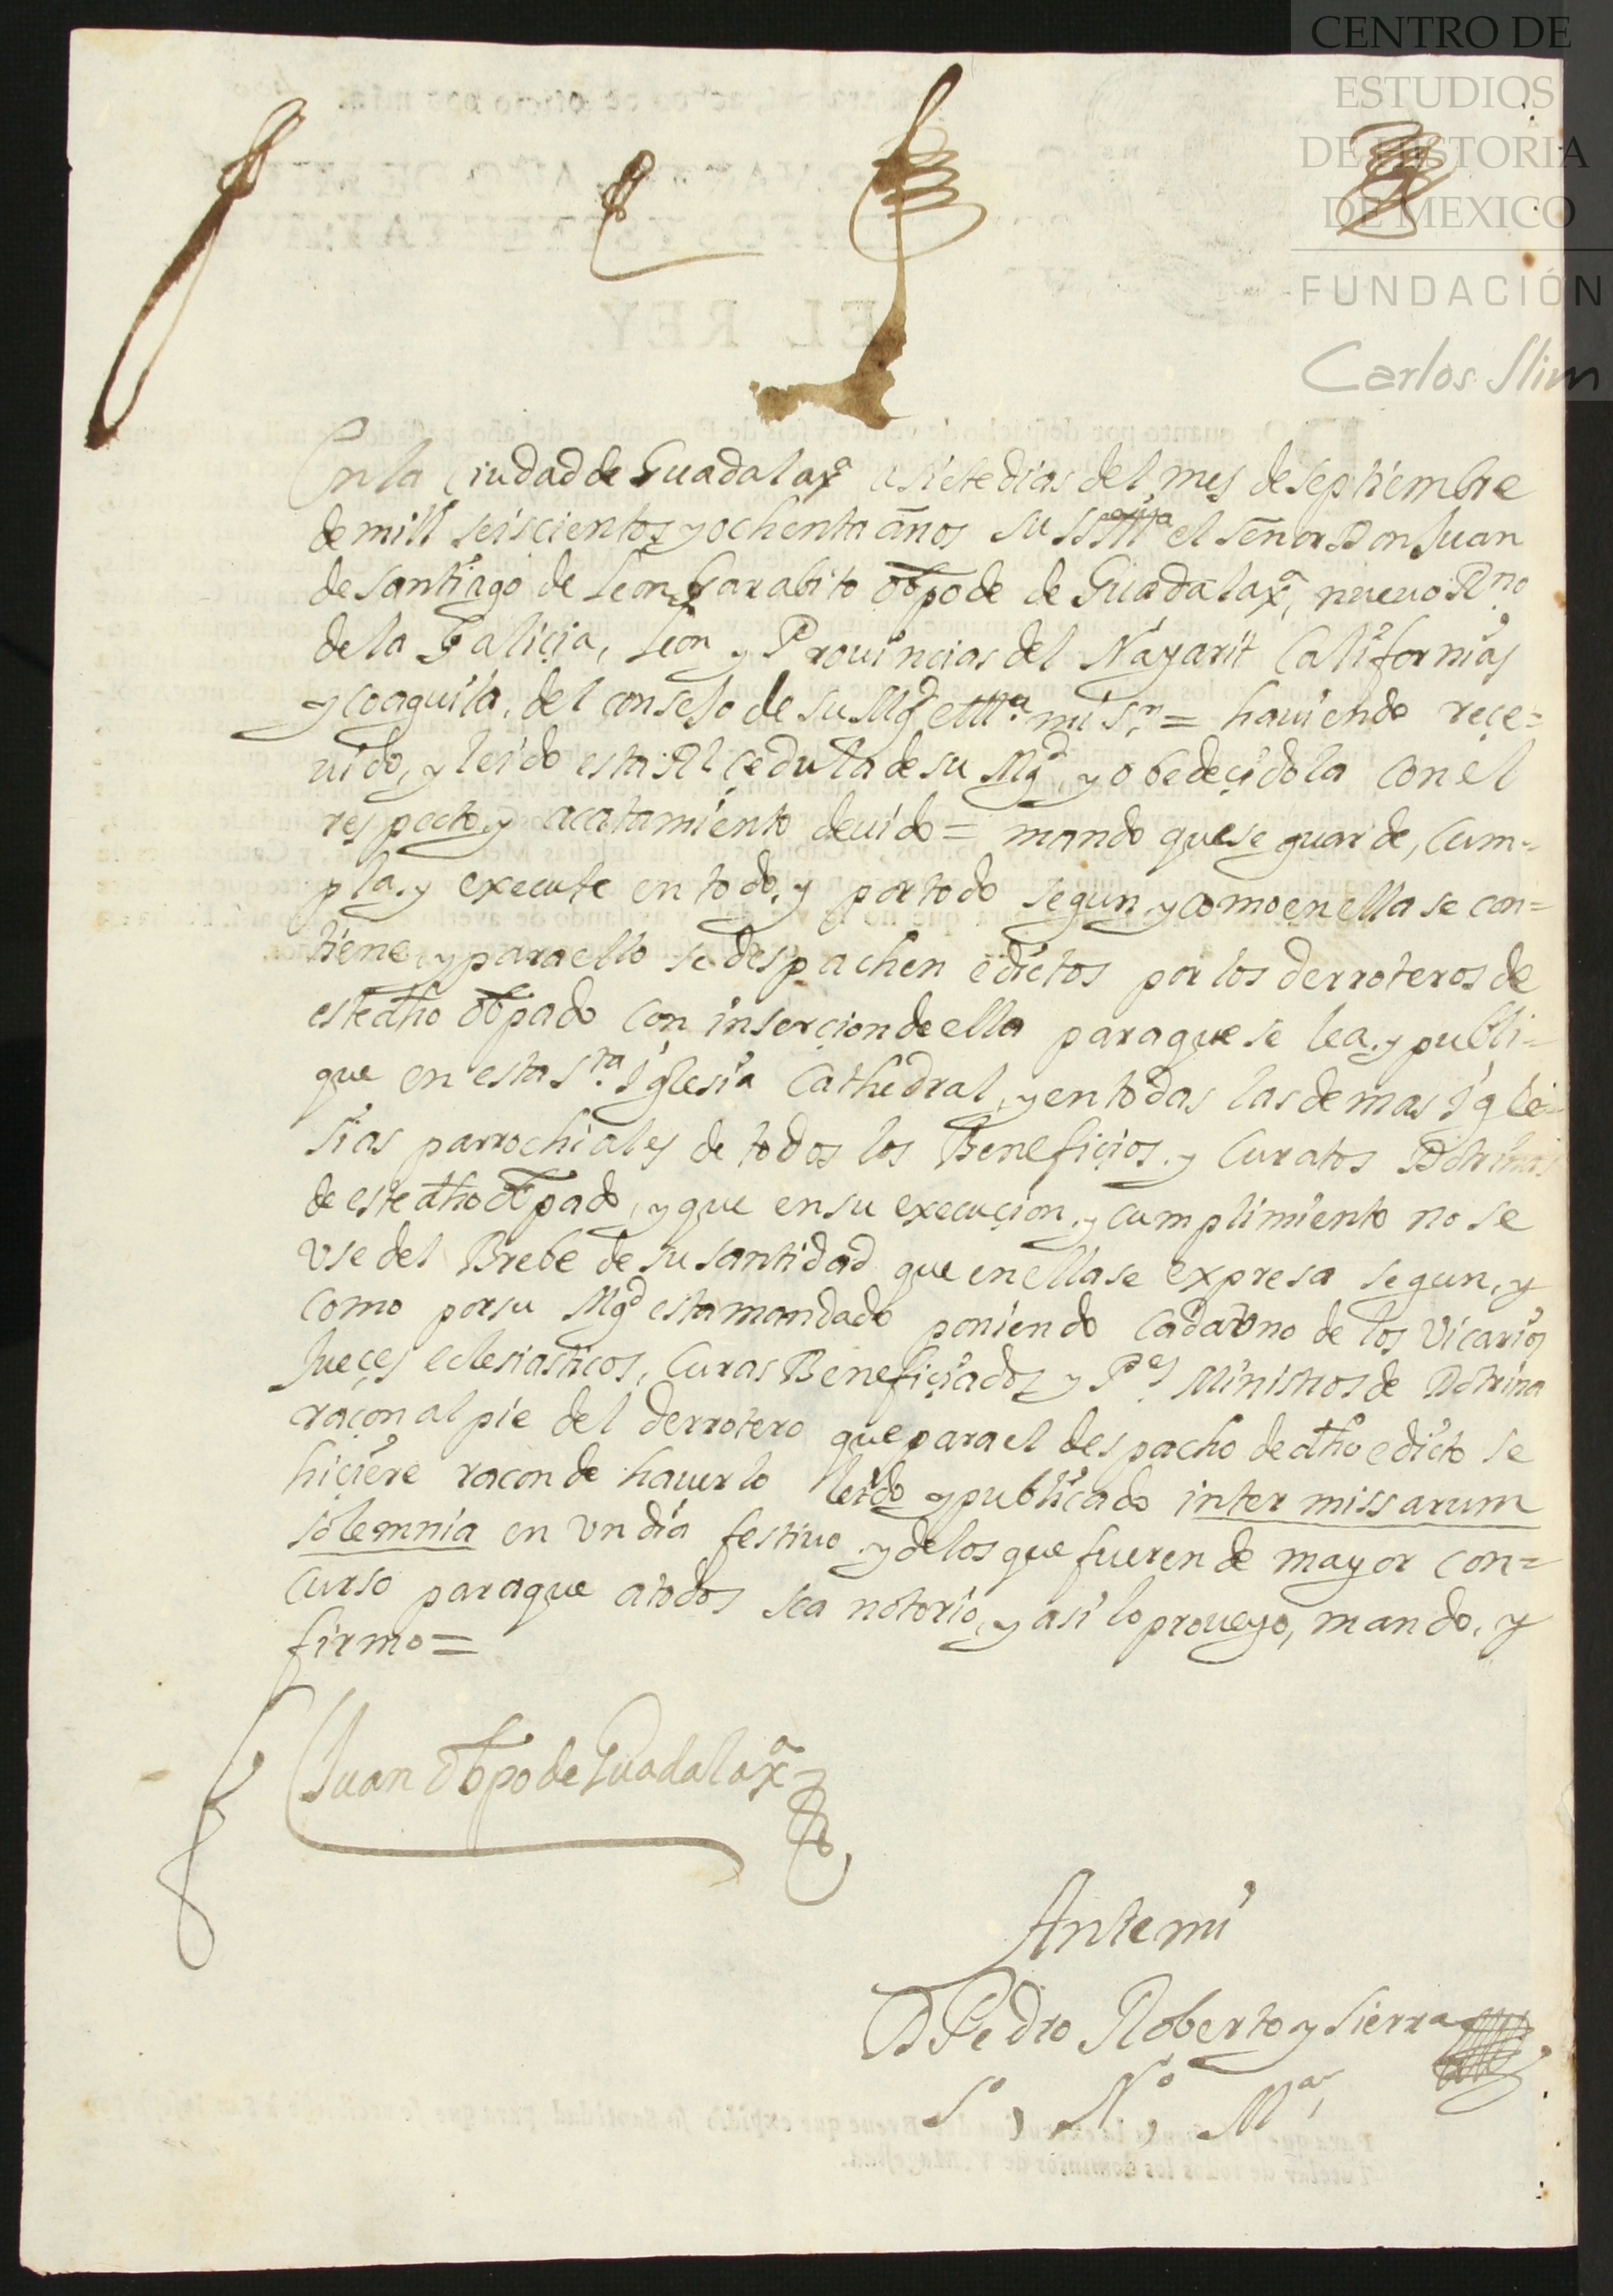 CENTRO DE
ESTUDIOS
DE HISTORIA
DE MEXICO
FUNDACIÓN
Carlos Slim
EL REY.
En la Ciudad de Guadalaxª a siete dias del mes de septiembre
de mill seiscientos y ochenta años su SSIllª el señor Don Juan
de santiago de leon Garabito obpo de de Guadalaxª, nueuo Rno
de la Galiçia, leon y Prouincias del Nayarit Californias
y coaguila, del consejo de su Mgd etttª mi Sr = hauiendo reçe=
uido, y leido esta Rl çedula de su Mgd y obedeçidola con el
respecto, y acatamiento deuido = mando que se guarde, Cum=
pla, y execute en todo, y por todo segun, y como en ella se con=
tiene, y para ello se despachen edictos por los derroteros de
este dho obpado con inserçion de ella para que se lea, y publi=
que en esta Sta Iglesia Cathedral, y en todas las demas Igle=
sias parrochiales de todos los Benefiçios, y Curatos Dotrinas
de este dho obpado, y que en su execuçion, y cumplimiento no se
vse del Brebe de su santidad que en ella se expresa segun, y
como por su Mgd esta mandado poniendo cada vno de los Vicarios
Jueçes eclesiasticos, Curas Benefiçiados, y Pes Ministros de Dotrina
raçon al pie del derrotero que para el despacho de dho edicto se
hiçiere racon de hauerlo leido y publicado inter missarum
solemnia en vn dia festiuo, y de los que fueren de mayor con=
curso para que a todos sea notorio, y asi lo proueyo, mando, y
firmo =
Juan obpo de Guadalaxª
Ante mi
D Pedro Roberto y Sierra
Sº, Nº, Mar,